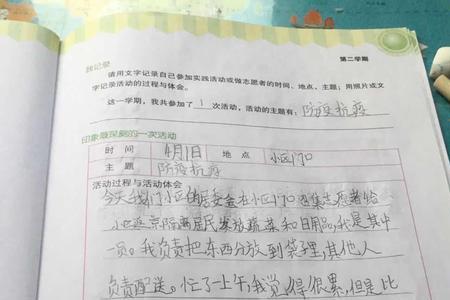 第二学期
践记录
请用文字记录自己参加实践活动或做志愿者的时间、地点、主题;用照片或文
字记录活动的过程与体会。
这一学期,我共参加了 1 次活动,活动的主题有:防疫抗疫
印象最深刻的一次活动
时间 4月1日 地点 小区门口
主题 防疫抗疫
活动过程与活动体会
今天我们小区的居委会在小区门口召集志愿者给
小区返京隔离居民发放蔬菜和日用品,我是其中
一员。我负责把东西分放到袋子里,其他人
负责配送。忙了一上午,我觉得很累,但是比